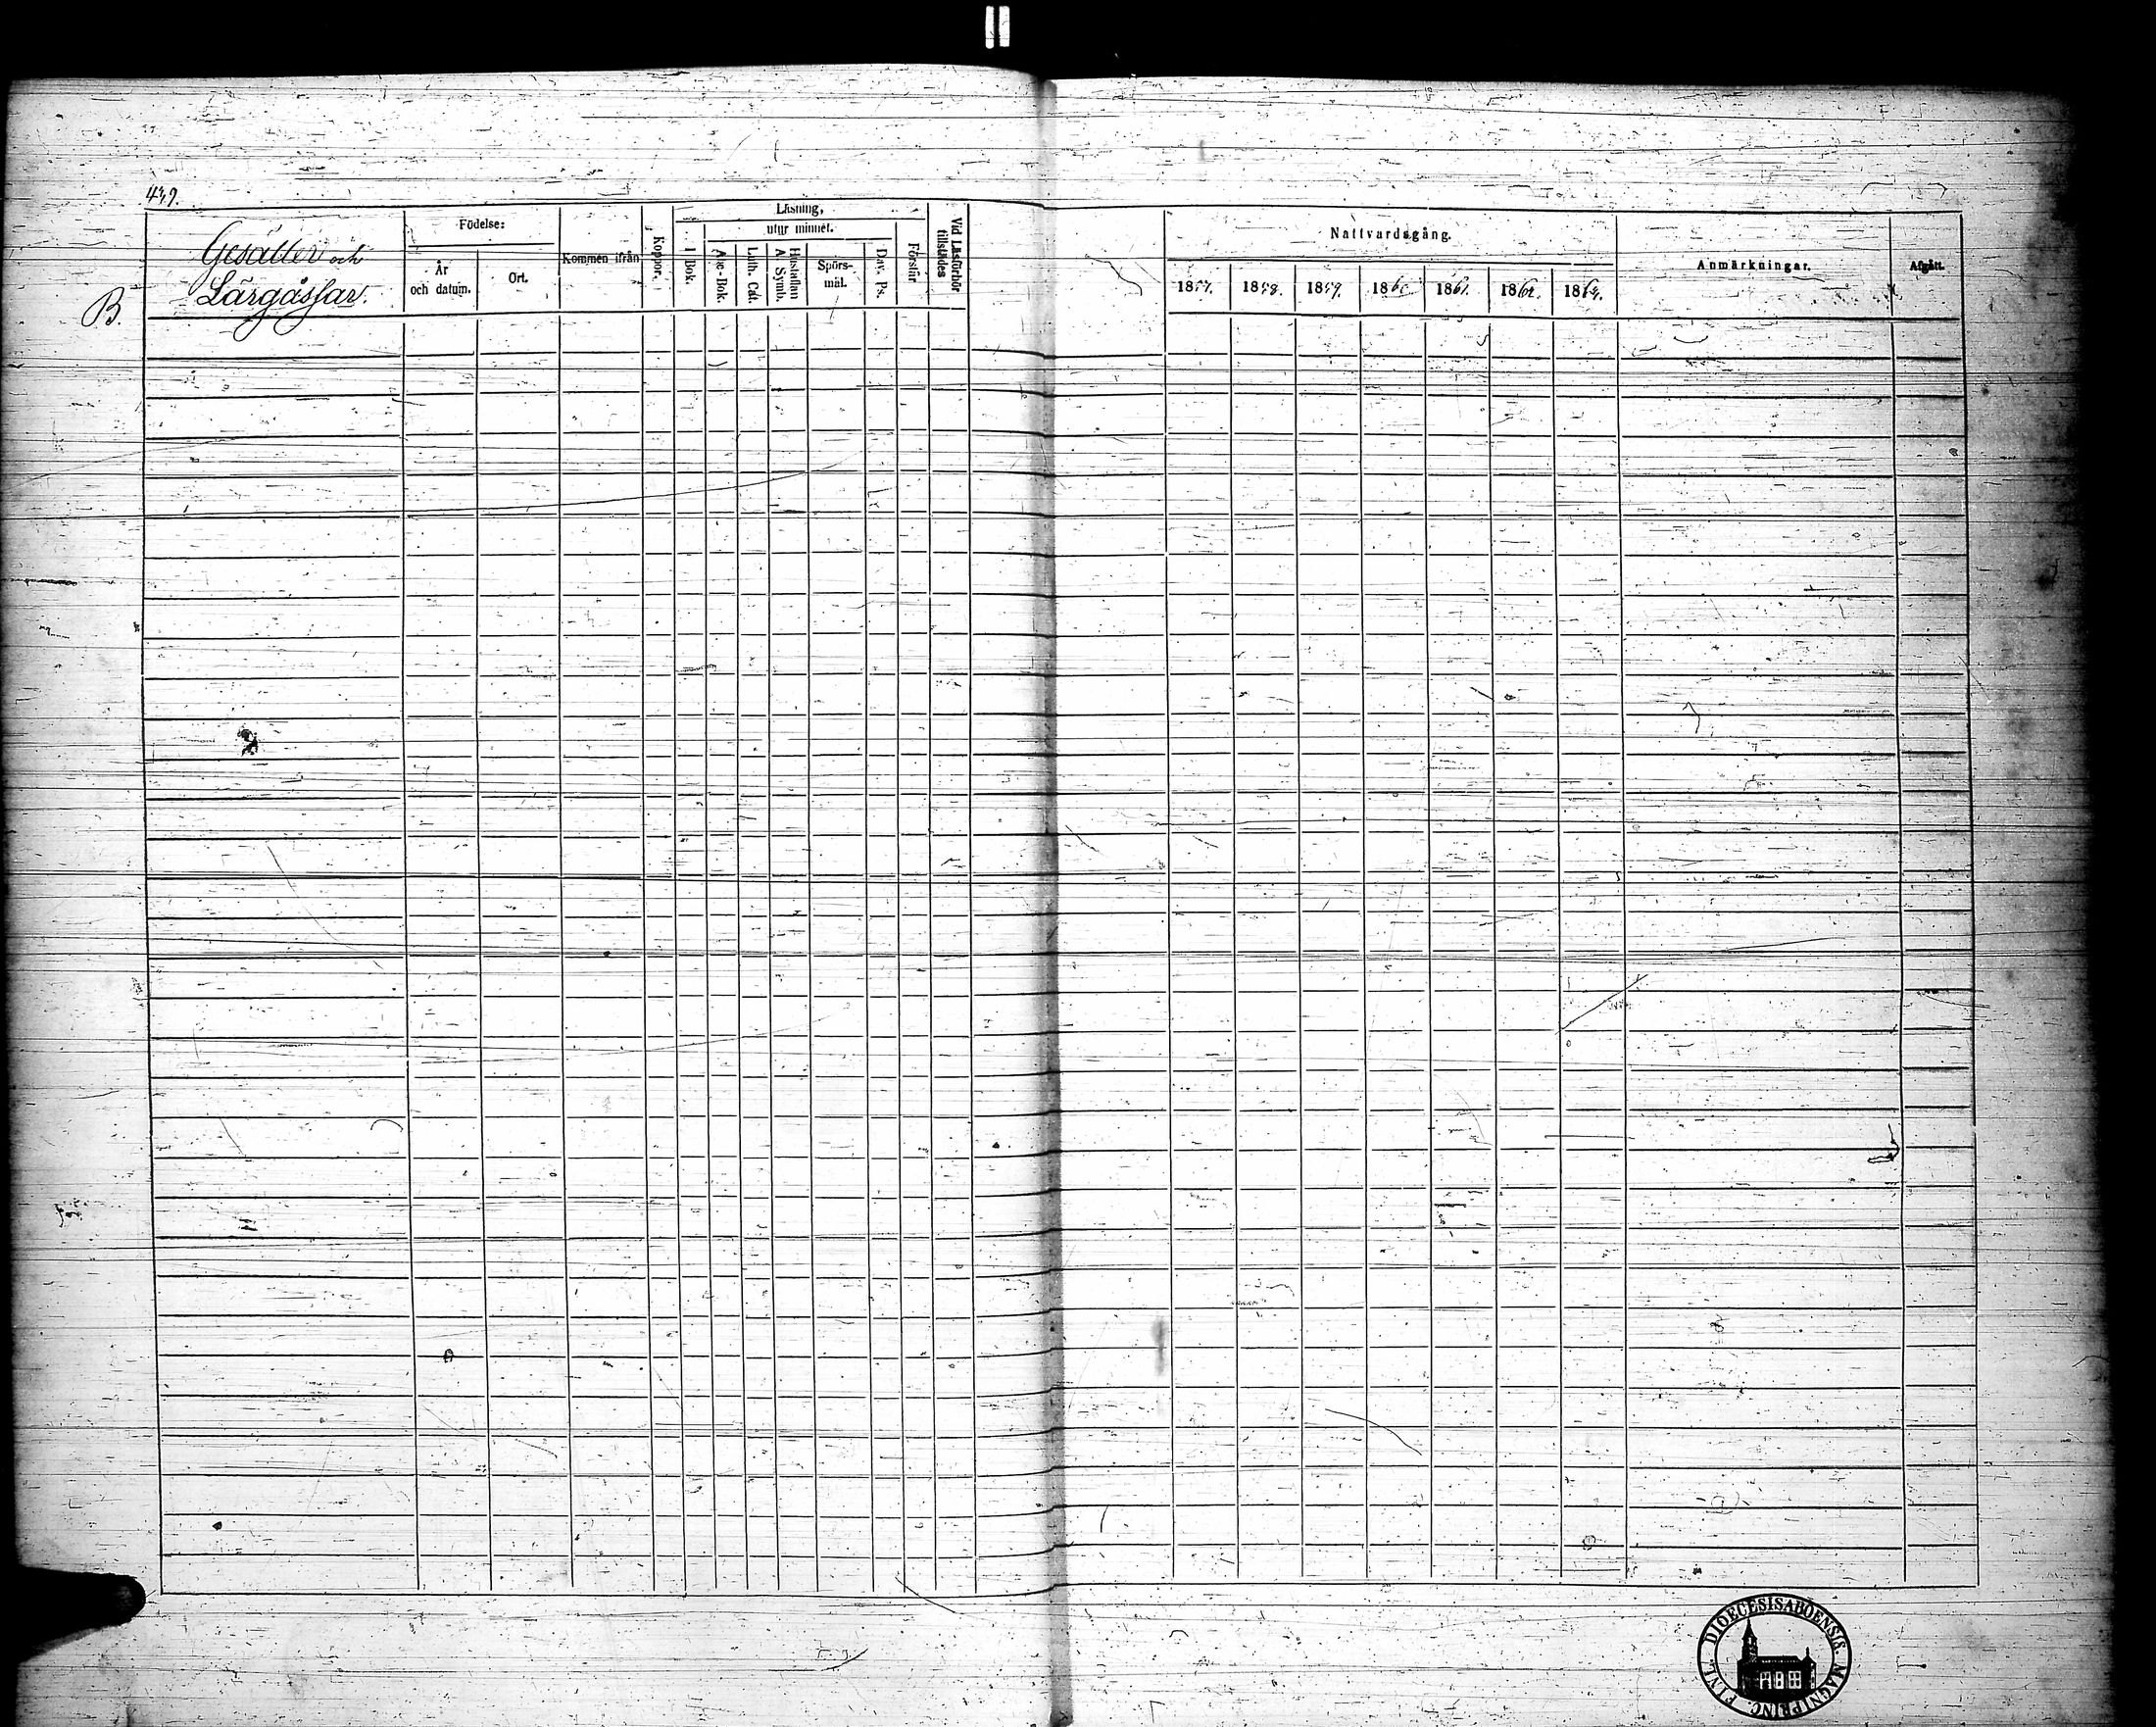 449.
Gesäller och
Lärgåssar.
B.
Födelse:
År
och datum.
Ort.
Kommen ifrån
Koppor.
Läsning,
utur minnet.
I Bok.
Abc-Bok.
Luth. Cat.
Hustaflan
A. Symb.
Spörs-
mål.
Dav. Ps.
Förstår
Vid Läsförhör
tillstädes
Nattvardsgång.
1857.
1858.
1859.
1860
1861.
1862.
Anmärkningar.
Afgått.
DIOECESIS ABOENSIS. MAGNI PRINC. FINL.